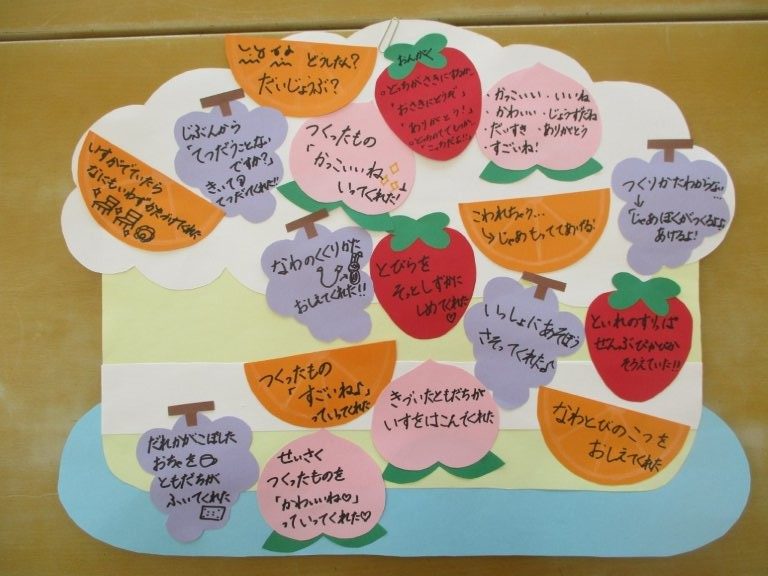 どうしたん?
だいじょうぶ?
おんがく
「おさきにどうぞ」
「ありがとう!」
・かっこいい ・いいね
・かわいい ・じょうずだね
・だいすき ・ありがとう
・すごいね!
じぶんから
「てつだうことない
ですか?」
きいて
てつだってくれた!!
つくったもの
「かっこいいね」
いってくれた!
いすがでていたら
なにもいわずかたづけてくれた
つくりかたわからない…
↓
「じゃあぼくがつくるよ」
あげるよ!
こわれちゃう…
↳じゃあもっててあげる!
なわのくくりかた
おしえてくれた!!
とびらを
そっとしずかに
しめてくれた♡
いっしょにあそぼう
さそってくれた♪
といれのすりっぱ
ぜんぶぴかぴか
そろえていた!!
つくったもの
「すごいね♪」
っていってくれた
きづいたともだちが
いすをはこんでくれた
なわとびのこつを
おしえてくれた
だれかがこぼした
おちゃを
ともだちが
ふいてくれた
せいさく
つくったものを
「かわいいね♡」
っていってくれた♡